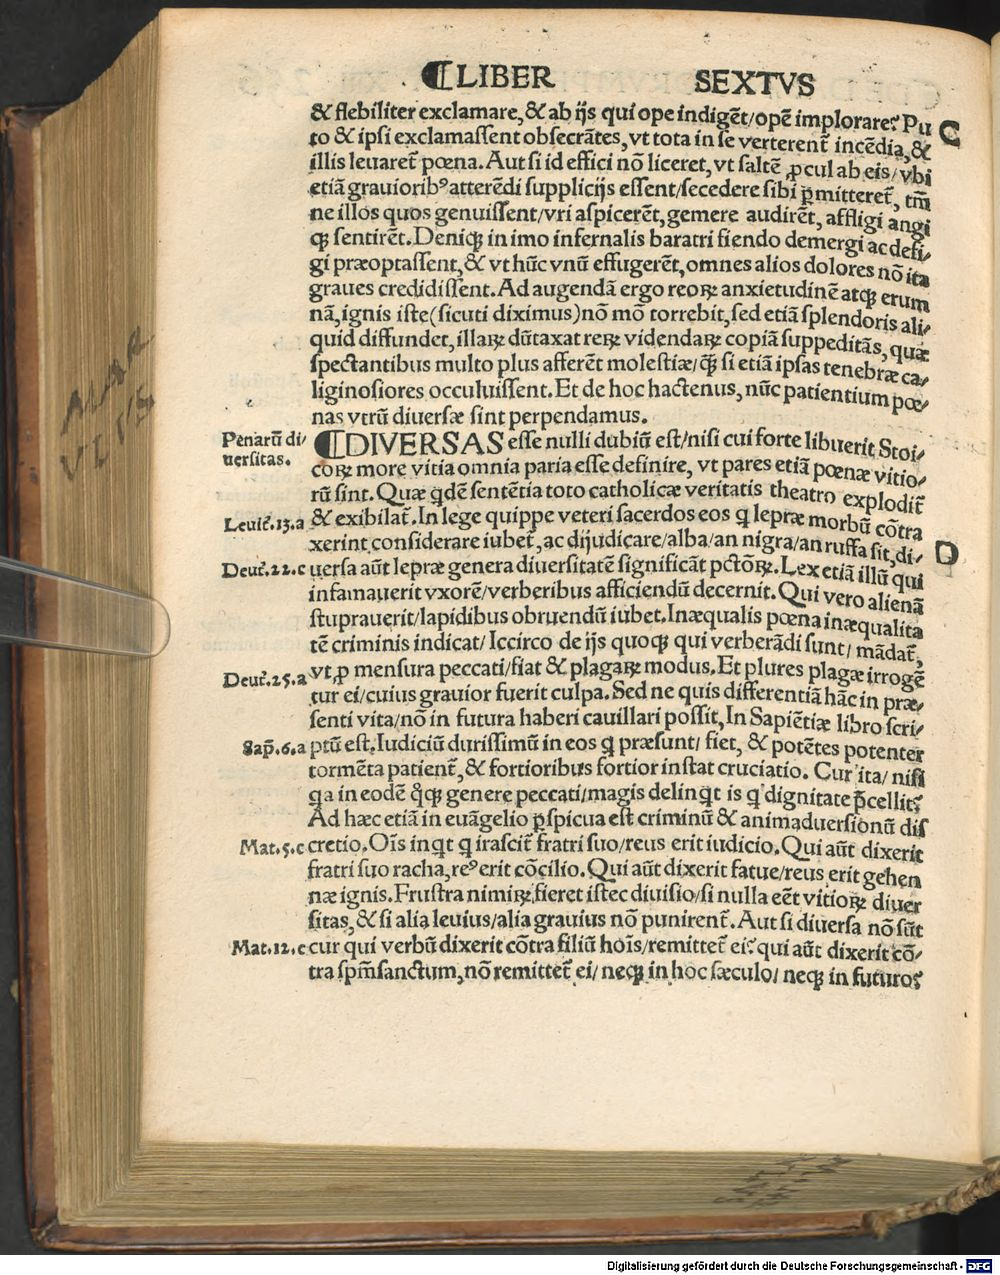 ⸿LIBER SEXTVS
& flebiliter exclamare, & ab ijs qui ope indigēt/opē implorare? Pu C
to & ipsi exclamassent obsecrātes, vt tota in se verterent̄ incēdia, &
illis leuaret̄ pœna. Aut si id effici nō liceret, vt saltē ꝓcul ab eis/vbi
etiā grauiorib⁹ atterēdi supplicijs essent/secedere sibi p̄mitteret̄, tm̄
ne illos quos genuissent/vri aspicerēt, gemere audirēt, affligi angi
qꝫ sentirēt. Deniqꝫ in imo infernalis baratri fiendo demergi ac defi/
gi præoptassent, & vt hūc vnū effugerēt, omnes alios dolores nō ita
graues credidissent. Ad augendā ergo reoꝝ anxietudinē atqꝫ erum
nā, ignis iste (sicuti diximus) nō mō torrebit, sed etiā splendoris ali/
quid diffundet, illaꝝ dūtaxat reꝝ videndaꝝ copiā suppeditās, quæ
spectantibus multo plus afferēt molestiæ/qꝫ̄ si etiā ipsas tenebræ ca/
liginosiores occuluissent. Et de hoc hactenus, nūc patientium pœ/
nas vtrū diuersæ sint perpendamus.
Penarū di/
uersitas.
⸿DIVERSAS esse nulli dubiū est/nisi cui forte libuerit Stoi/
coꝝ more vitia omnia paria esse definire, vt pares etiā pœnæ vitio/
rū sint. Quæ qdē sentētia toto catholicæ veritatis theatro explodit̄
Leuit̄.13.a & exibilat̄. In lege quippe veteri sacerdos eos q lepræ morbū cōtra
xerint considerare iubet̄, ac dijudicare/alba/an nigra/an ruffa sit, di/ D
Deut̄.22.c uersa aūt lepræ genera diuersitatē significāt pctōꝝ. Lex etiā illū qui
infamauerit vxorē/verberibus afficiendū decernit. Qui vero alienā
stuprauerit/lapidibus obruendū iubet. Inæqualis pœna inæqualita
tē criminis indicat/ Iccirco de ijs quoqꝫ qui verberādi sunt/ mādat̄,
Deut̄.25.a vt ꝓ mensura peccati/fiat & plagaꝝ modus. Et plures plagæ irrogē
tur ei/cuius grauior fuerit culpa. Sed ne quis differentiā hāc in præ/
senti vita/nō in futura haberi cauillari possit, In Sapiētiæ libro scri/
Sap̄.6.a ptū est. Iudiciū durissimū in eos q præsunt/ fiet, & potētes potenter
tormēta patient̄, & fortioribus fortior instat cruciatio. Cur ita/ nisi
qa in eodē qqꝫ genere peccati/magis delinqt is q dignitate p̄cellit?
Ad hæc etiā in euāgelio p̄spicua est criminū & animaduersionū dis
Mat.5.c cretio. Oīs inqt q irascit̄ fratri suo/reus erit iudicio. Qui aūt dixerit
fratri suo racha, re⁹ erit cōcilio. Qui aūt dixerit fatue/reus erit gehen
næ ignis. Frustra nimiꝝ fieret istec diuisio/si nulla eēt vitioꝝ diuer
sitas, & si alia leuius/alia grauius nō punirent̄. Aut si diuersa nō sūt
Mat.12.c cur qui verbū dixerit cōtra filiū hoīs/remittet̄ ei? qui aūt dixerit cō/
tra sp̄msanctum, nō remittet̄ ei/ neqꝫ in hoc sæculo/ neqꝫ in futuro?
Digitalisierung gefördert durch die Deutsche Forschungsgemeinschaft - DFG